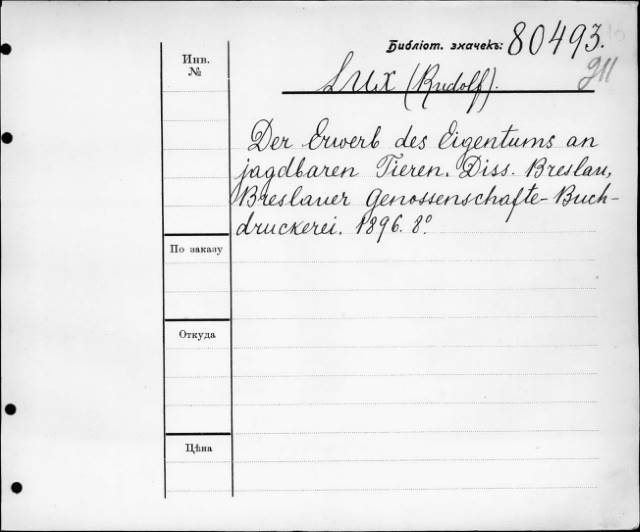 Библіот. значекъ: 80493.
Инв.
№
Lux (Rudolf).
Der Erwerb des Eigentums an
jagdbaren Tieren. Diss. Breslau,
Breslauer Genossenschafts-Buch-
druckerei. 1896. 8°.
По заказу
Откуда
Цѣна